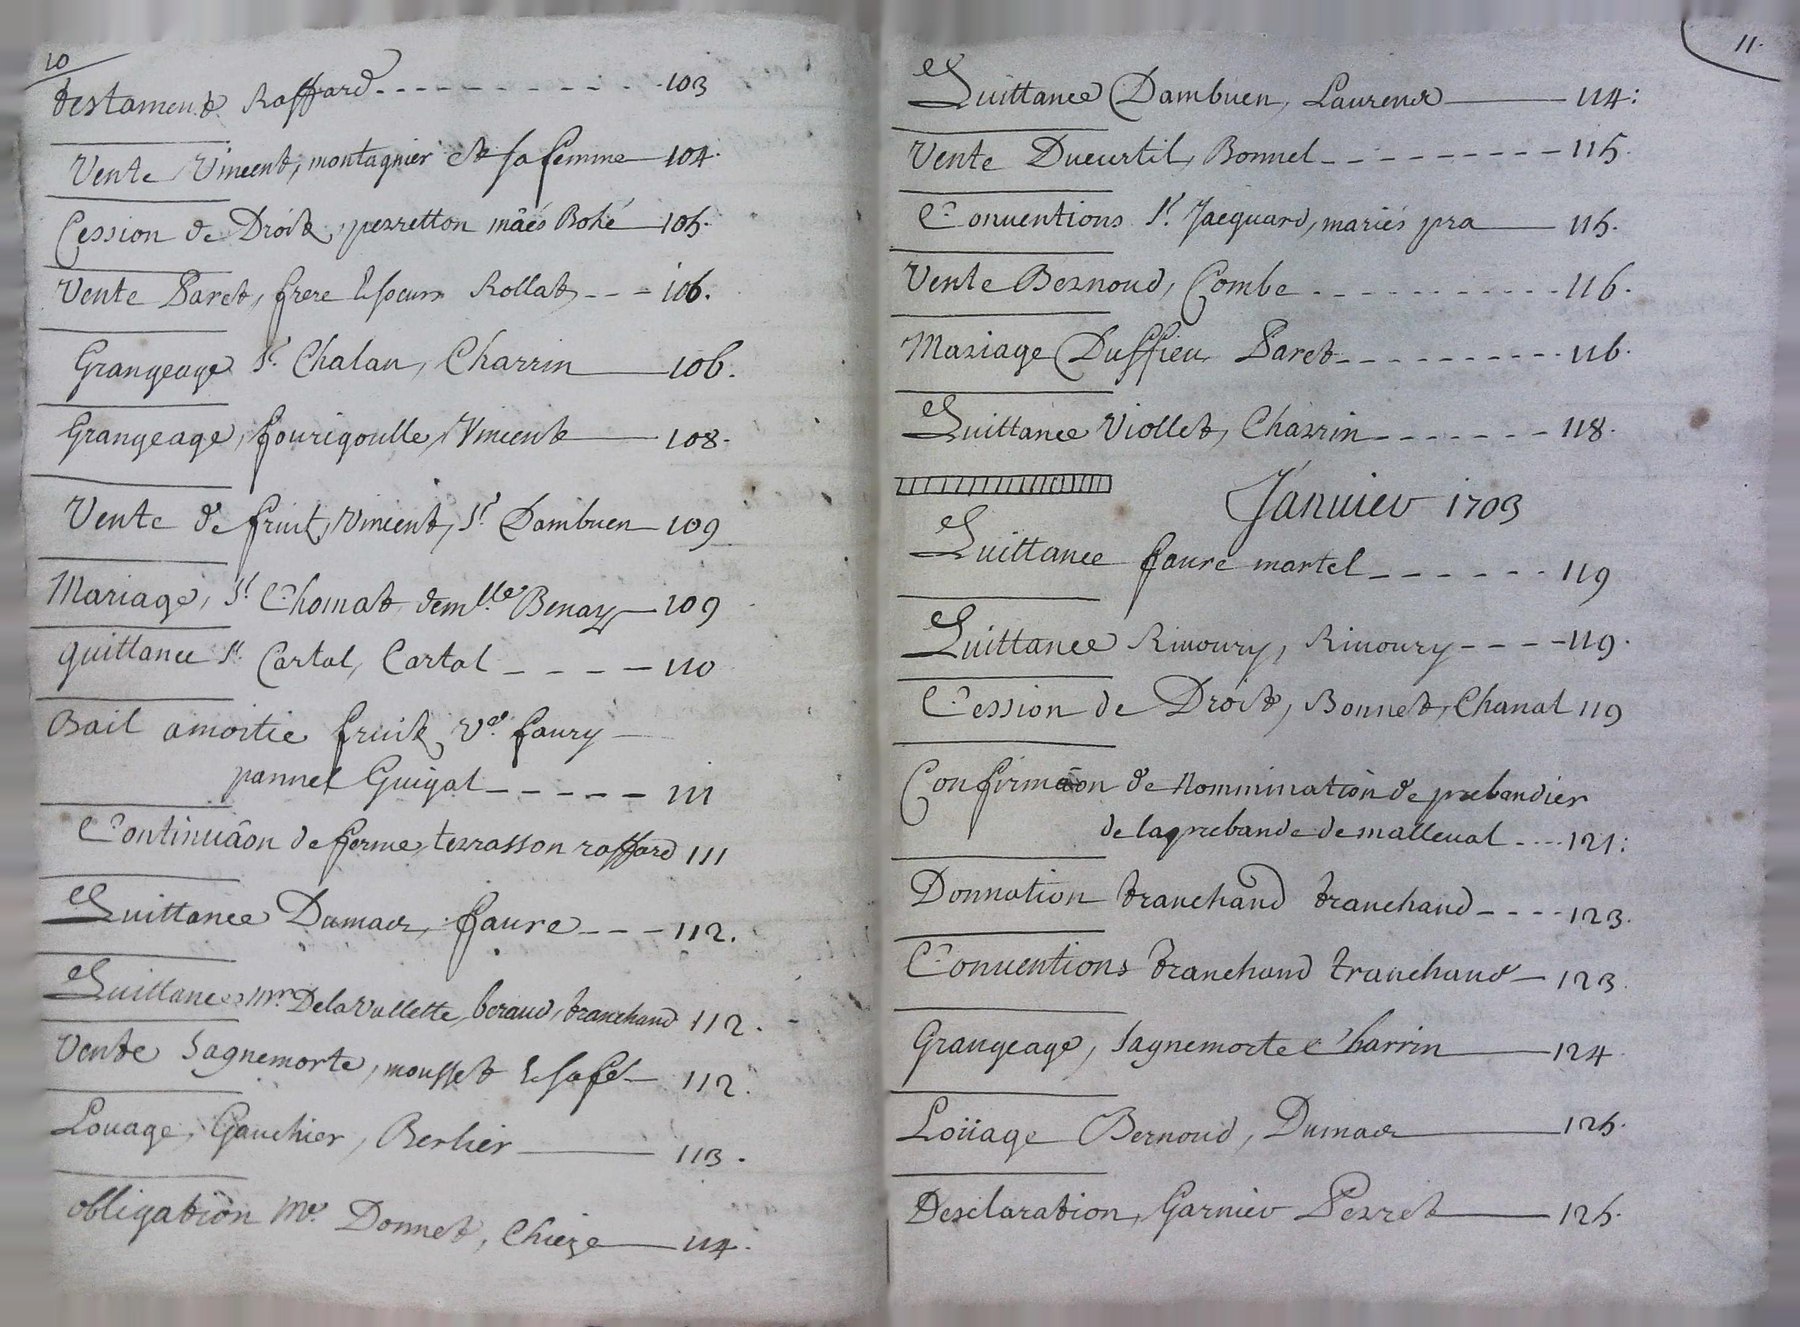 10
testament Raffard - - - - - - - - - - 103
Vente Vincent, montagnier et sa femme — 104.
Cession de Droit, perretton mâés Bohé — 105.
Vente Paret, frere & soeurs Rollat - - - 106.
Grangeage Sr. Chalan, Charrin — 106.
Grangeage, fourigoulle, Vincent — 108.
Vente de fruit, Vincent, Sr Dambuen — 109
Mariage, Sr Chomat demlle Benay — 109
quittance Sr Cartal, Cartal - - - - 110
Bail amoitie fruit, Ve. faury —
pannel Guigal - - - - - 111
Continuâon de ferme, terrasson raffard 111
Quittance Dumas, faure - - - 112.
Quittance Mr Delavallette, beraud, tranchand 112.
Vente Sagnemorte, mousset & sa fe — 112.
Louage, Gauchier, Berlier — 113.
obligation Me. Donnet, Chieze — 114.
11.
Quittance Dambuen, Laurend — 114:
Vente Ducurtil, Bonnel - - - - - - - - - 115.
Conventions Sr. Jacquard, mariés pra — 115.
Vente Bernoud, Combe - - - - - - - - - - 116.
Mariage Duffieu Paret - - - - - - - - - 116.
Quittance Viollet, Charrin - - - - - - - 118.
Januier 1703
Quittance faure martel - - - - - - 119
Quittance Rivoury, Rivoury - - - - 119.
Cession de Droit, Bonnet, Chanal 119
Confirmâon de Nommination de prebandier
de la prebande de malleual - - - 121:
Donnation tranchand tranchand - - - - 123.
Conuentions tranchand tranchand — 123.
Grangeage, Sagnemorte Charrin — 124
Loüage Bernoud, Dumas — 125.
Desclaration, Garnier Perret — 125.